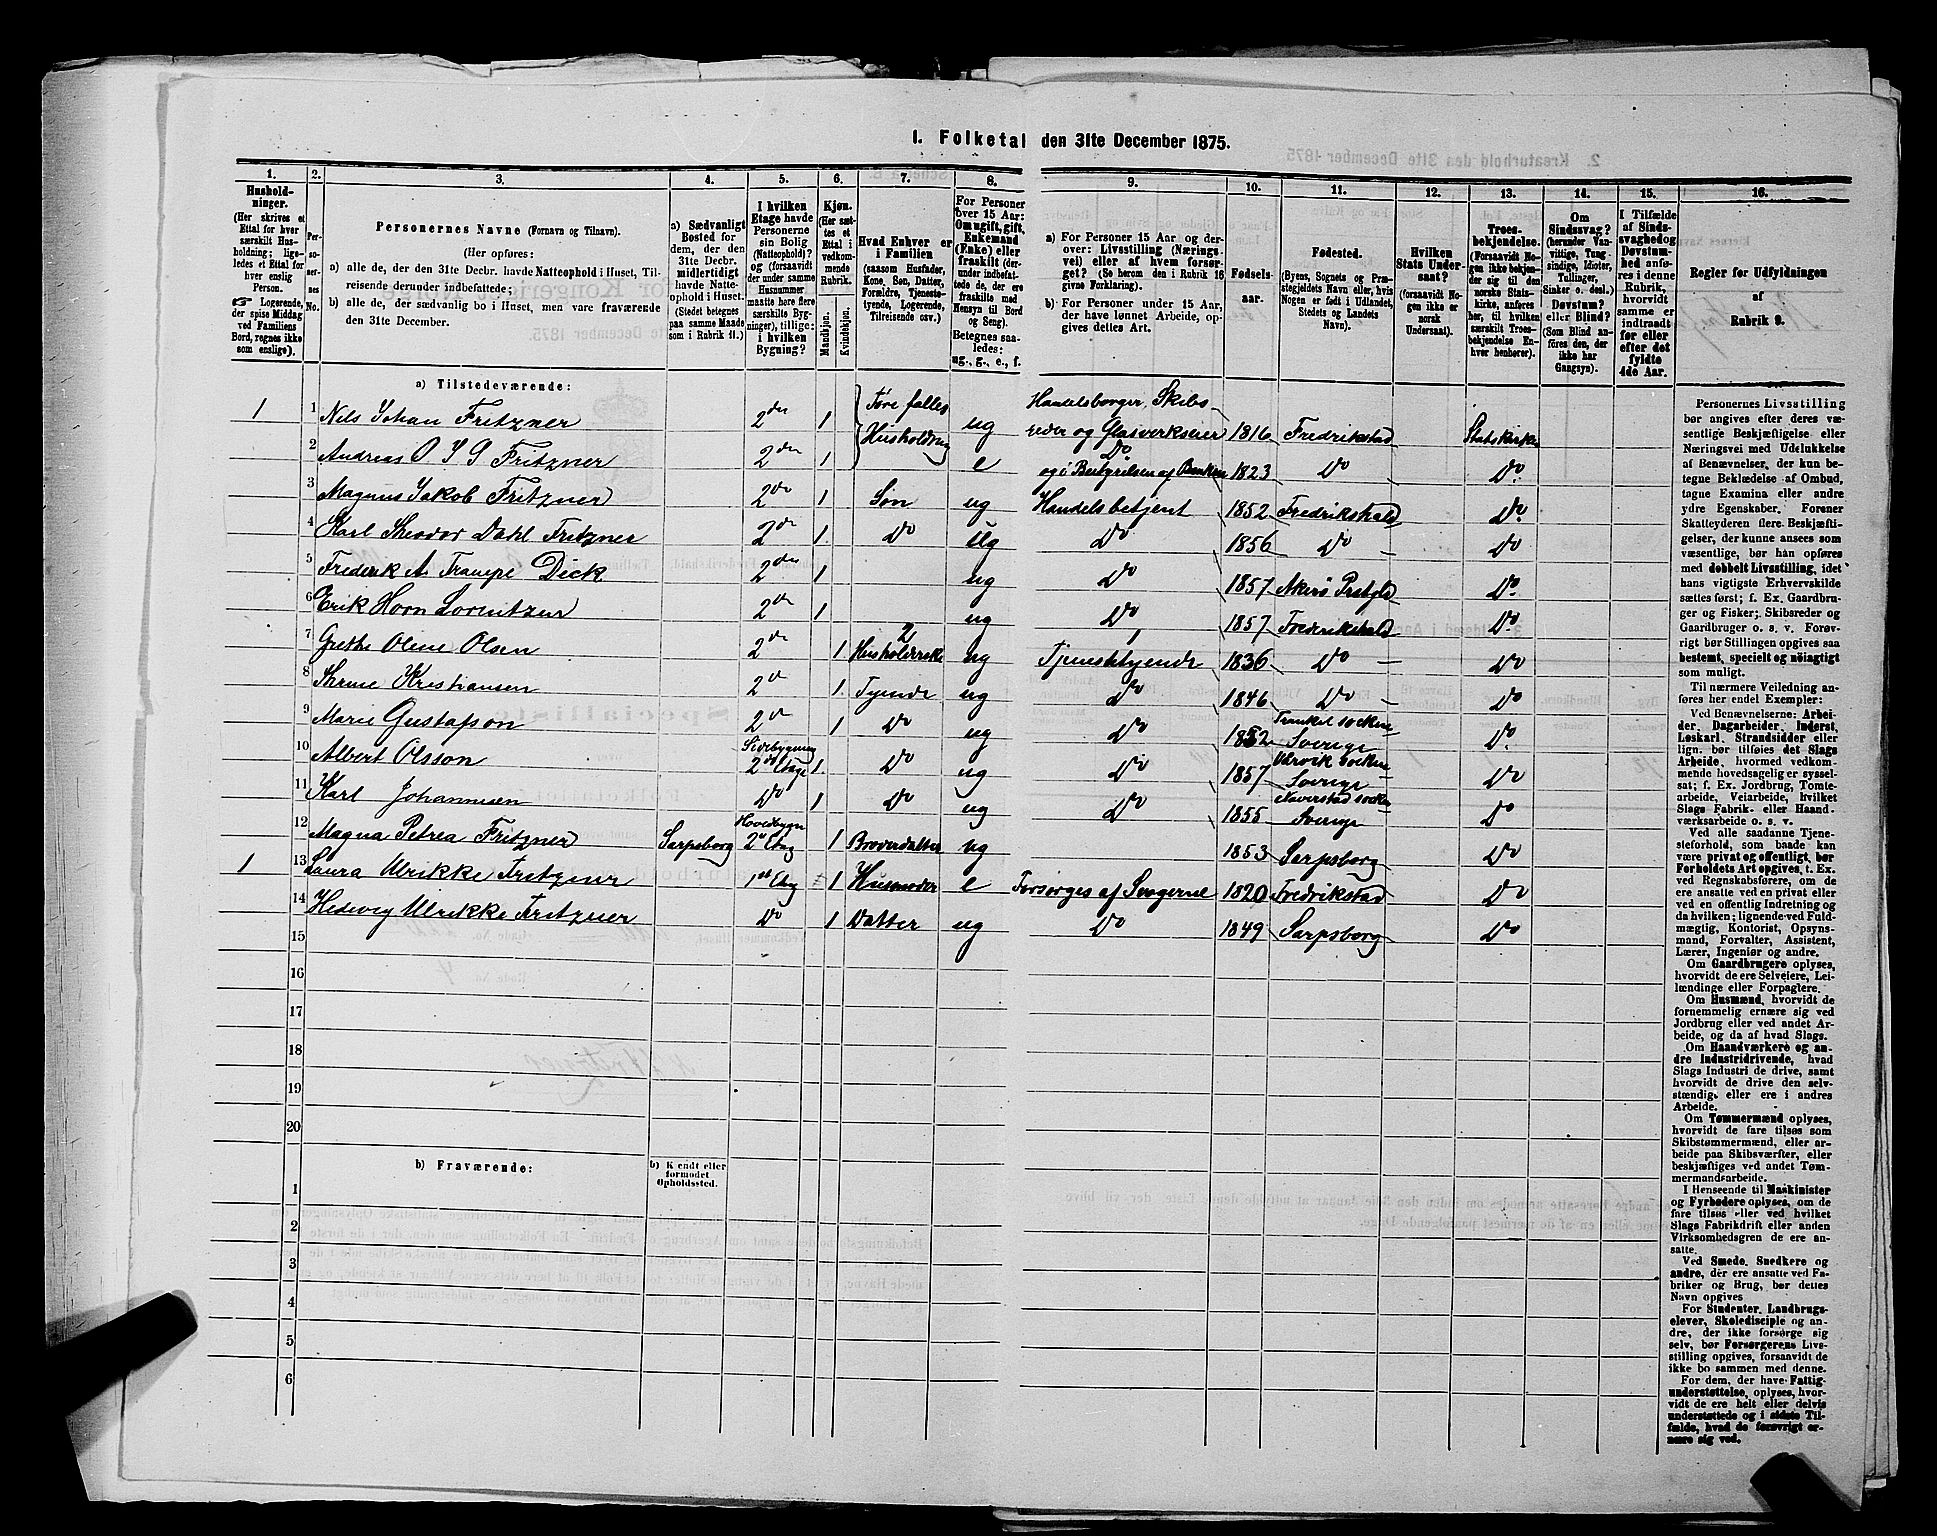 1. Folketal den 31te December 1875.
1. 2. 3. 4. 5. 6. 7. 8. 9. 10. 11. 12. 13. 14. 15. 16.
Hushold-
ninger.
(Her skrives et
Ettal for hver
særskilt Hus-
holdning; lige-
ledes et Ettal for
hver enslig
Person.
☞ Logerende,
der spise Middag
ved Familiens
Bord, regnes ikke
som enslige).
Per-
so-
ner-
nes
No.
Personernes Navne (Fornavn og Tilnavn).
(Her opføres:
a) alle de, der den 31te Decbr. havde Natteophold i Huset, Til-
reisende derunder indbefattede;
b) alle de, der sædvanlig bo i Huset, men vare fraværende
den 31te December.
a) Sædvanligt
Bosted for
dem, der den
31te Decbr.
midlertidigt
havde Natte-
ophold i Huset:
(Stedet betegnes
paa samme Maade
som i Rubrik 11.)
I hvilken
Etage havde
Personerne
sin Bolig
(Natteophold)?
og (forsaavidt
der under samme
Husnummer
maatte høre flere
særskilte Byg-
ninger), tillige:
i hvilken
Bygning?
Kjøn.
(Her sæt-
tes et
Ettal i
vedkom-
mende
Rubrik.
Mandkjøn.
Kvindekjøn.
Hvad Enhver er
i Familien
(saasom Husfader,
Kone, Søn, Datter,
Forældre, Tjeneste-
tyende, Logerende,
Tilreisende osv.)
For Personer
over 15 Aar:
Om ugift, gift,
Enkemand
(Enke) eller
fraskilt (der-
under indbefat-
tede de, der ere
fraskilte med
Hensyn til Bord
og Seng).
Betegnes saa-
ledes:
ug., g., e., f.
a) For Personer 15 Aar og der-
over: Livsstilling (Nærings-
vei) eller af hvem forsør-
get? (Se herom den i Rubrik 16
givne Forklaring).
b) For Personer under 15 Aar,
der have lønnet Arbeide, op-
gives dettes Art.
Fødsels-
aar.
Fødested.
(Byens, Sognets og Præ-
stegjeldets Navn eller, hvis
Nogen er født i Udlandet,
Stedets og Landets
Navn).
Hvilken
Stats Under-
saat?
(forsaavidt No-
gen ikke er
norsk
Undersaat).
Troes-
bekjendelse.
(Forsaavidt No-
gen ikke bekjen-
der sig til den
norske Stats-
kirke, anføres
her, til hvilken
særskilt Troes-
bekjendelse En-
hver henhører).
Om
Sindssvag?
(herunder Van-
vittige, Tung-
sindige, Idioter,
Tullinger,
Sinker o. desl.)
Døvstum?
eller Blind?
(Som Blind an-
føres den, der
ikke har
Gangsyn).
I Tilfælde
af Sinds-
svaghed og
Døvstum-
hed anfø-
res i denne
Rubrik,
hvorvidt
samme er
indtraadt
før eller
efter det
fyldte
4de Aar.
Regler for Udfyldningen
af
Rubrik 9.
a) Tilstedeværende:
1 1 Nils Johan Fritzner 2den 1 Føre fælles Husholdning ug Handelsborger, Skibs-
reder og Glasverkseier 1816 Fredrikstad Statskirken
2 Andreas O J G Fritzner 2den 1 e Do
og i Bestyrelsen af Banken 1823 Do Do
3 Magnus Jakob Fritzner 2do 1 Søn ug Handelsbetjent 1852 Fredrikshald Do
4 Karl Theodor Dahl Fritzner 2den 1 Do ug Do 1856 Do Do
5 Frederik A. Trampe Deck 2den 1 ug Do 1857 Akers Prstgld Do
6 Erik Horn Lornitzen 2den 1 ug Do 1857 Frederikshald Do
7 Grethe Oline Olsen 2de 1 Husholderske ug Tjenestetyende 1836 Do Do
8 Thrine Kristiansen 2d 1 Tyende ug Do 1846 Do Do
9 Marie Gustafson 2d 1 Do ug Do 1852 Sverige Do
10 Albert Olsson Sidebygning
2den Etage 1 Do ug Do 1857 Sverige Do
11 Karl Johannesen Do 1 Do ug Do 1855 Naverstad socken
Sverige Do
12 Magna Petrea Fritzner Sarpsborg Hovedbygn
2n Etag 1 Broderdatter ug 1853 Sarpsborg Do
1 13 Laura Ulrikke Fritzner 1st Etag 1 Husmoder e Forsørges af Svogerne 1820 Fredrikstad Do
14 Hedevig Ulrikke Fritzner Do 1 Datter ug Do 1849 Sarpsborg Do
15
16
17
18
19
20
b) Fraværende: b) Kjendt eller
formodet
Opholdssted.
1
2
3
4
5
6
Personernes Livsstilling
bør angives efter deres væ-
sentlige Beskjæftigelse eller
Næringsvei med Udelukkelse
af Benævnelser, der kun be-
tegne Beklædelse af Ombud,
tagne Examina eller andre
ydre Egenskaber. Forener
Skatteyderen flere Beskjæfti-
gelser, der kunne ansees som
væsentlige, bør han opføres
med dobbelt Livsstilling, idet
hans vigtigste Erhvervskilde
sættes først; f. Ex. Gaardbru-
ger og Fisker; Skibsreder og
Gaardbruger o. s. v. Forøv-
rigt bør Stillingen opgives saa
bestemt, specielt og nöiagtigt
som muligt.
Til nærmere Veiledning an-
føres her endel Exempler:
Ved Benævnelserne: Arbei-
der, Dagarbeider, Inderst,
Løskarl, Strandsidder eller
lign. bør tilføies det Slags
Arbeide, hvormed vedkom-
mende hovedsagelig er syssel-
sat; f. Ex. Jordbrug, Tomte-
arbeide, Veiarbeide, hvilket
Slags Fabrik- eller Haand-
værksarbeide o. s. v.
Ved alle saadanne Tjene-
steforhold, som baade kan
være privat og offentligt, bør
Forholdets Art opgives, t. Ex.
ved Regnskabsførere, om de
ere ansatte ved en privat eller
ved en offentlig Indretning og
da hvilken; lignende ved Fuld-
mægtig, Kontorist, Opsyns-
mand, Forvalter, Assistent,
Lærer, Ingeniør og andre.
Om Gaardbrugere oplyses,
hvorvidt de ere Selveiere, Lei-
lændinge eller Forpagtere.
Om Husmænd, hvorvidt de
fornemmelig ernære sig ved
Jordbrug eller ved andet Ar-
beide, og da af hvad Slags.
Om Haandværkere og an-
dre Industridrivende, hvad
Slags Industri de drive, samt
hvorvidt de drive den selv-
stændig eller ere i andres
Arbeide.
Om Tømmermænd oplyses,
hvorvidt de fare tilsøs som
Skibstømmermænd, eller ar-
beide paa Skibsværfter, eller
beskjæftiges ved andet Tøm-
mermandsarbeide.
I Henseende til Maskinister
og Fyrbødere oplyses, om de
fare tilsøs eller ved hvilket
Slags Fabrikdrift eller anden
Virksomhedsgren de ere an-
satte.
Ved Smede, Snedkere og
andre, der ere ansatte ved Fa-
briker og Brug, bør dettes
Navn opgives
For Studenter, Landbrugs-
elever, Skoledisciple og an-
dre, der ikke forsørge sig
selv, bør Forsørgerens Livs-
stilling opgives, forsaavidt de
ikke bo sammen med denne.
For dem, der have Fattig-
understøttelse, oplyses, hvor-
vidt de ere helt eller delvis
understøttede og i sidste Til-
fælde, hvad de forøvrigt er-
nære sig ved.